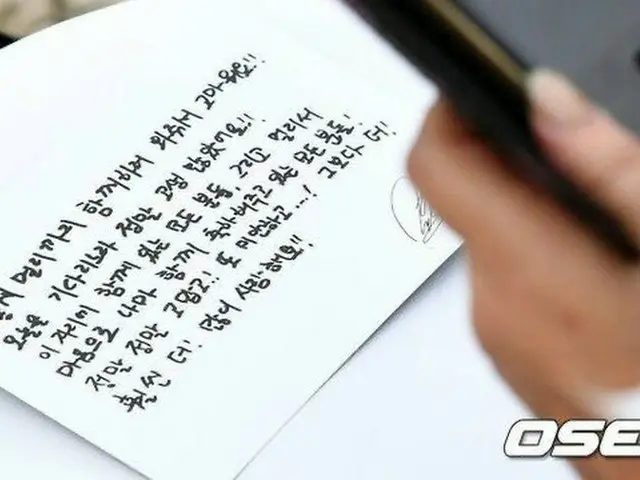 멀리까지 함께하러 와줘서 고마워요!!
오늘을 기다리느라 정말 고생 많았어요!!
이 자리에 함께 있는 모든 분들, 그리고 멀리서
마음으로 나마 함께 축하해주고 있는 모든 분들!
정말 정말 고맙고!! 또 미안하고...! 그보다 더!
훨씬 더! 많이 사랑해요!!
OSE